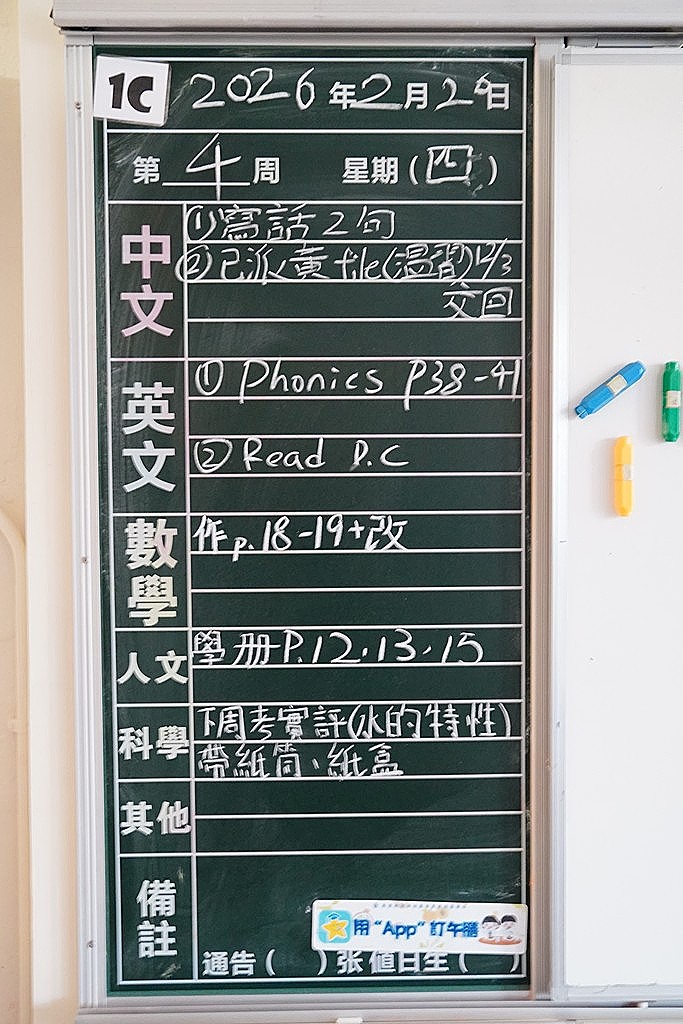 1C 2026年2月26日
第4周 星期(四)
中文
①寫話2句
②已派黃file(溫習)12/3
交回
英文
① Phonics P38-41
② Read D.C
數學
作p.18-19+改
人文
學册P.12.13.15
科學
下周考實評(水的特性)
帶紙筒、紙盒
其他
備註
用"App"訂午膳
通告( )张 值日生( )